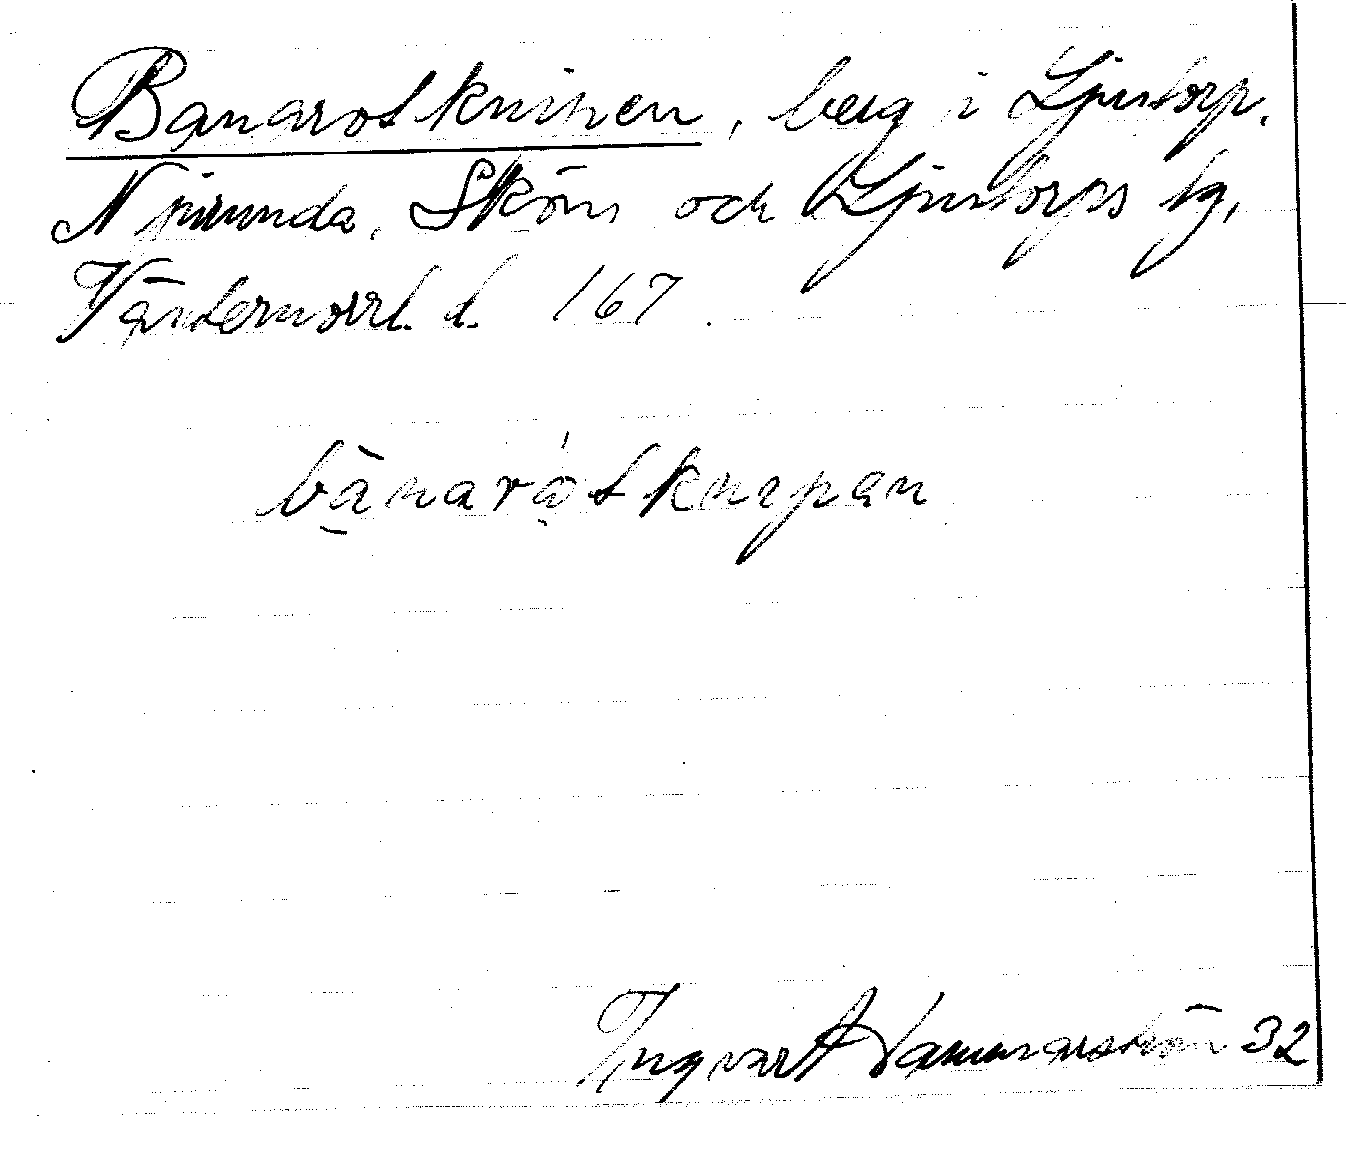 Banarotknipen, berg i Ljustorp.
Njurunda, Sköns och Ljustorps tg,
Västernorrl. l. 167.
bànaròtknepan
Ingvar Hammarström 32